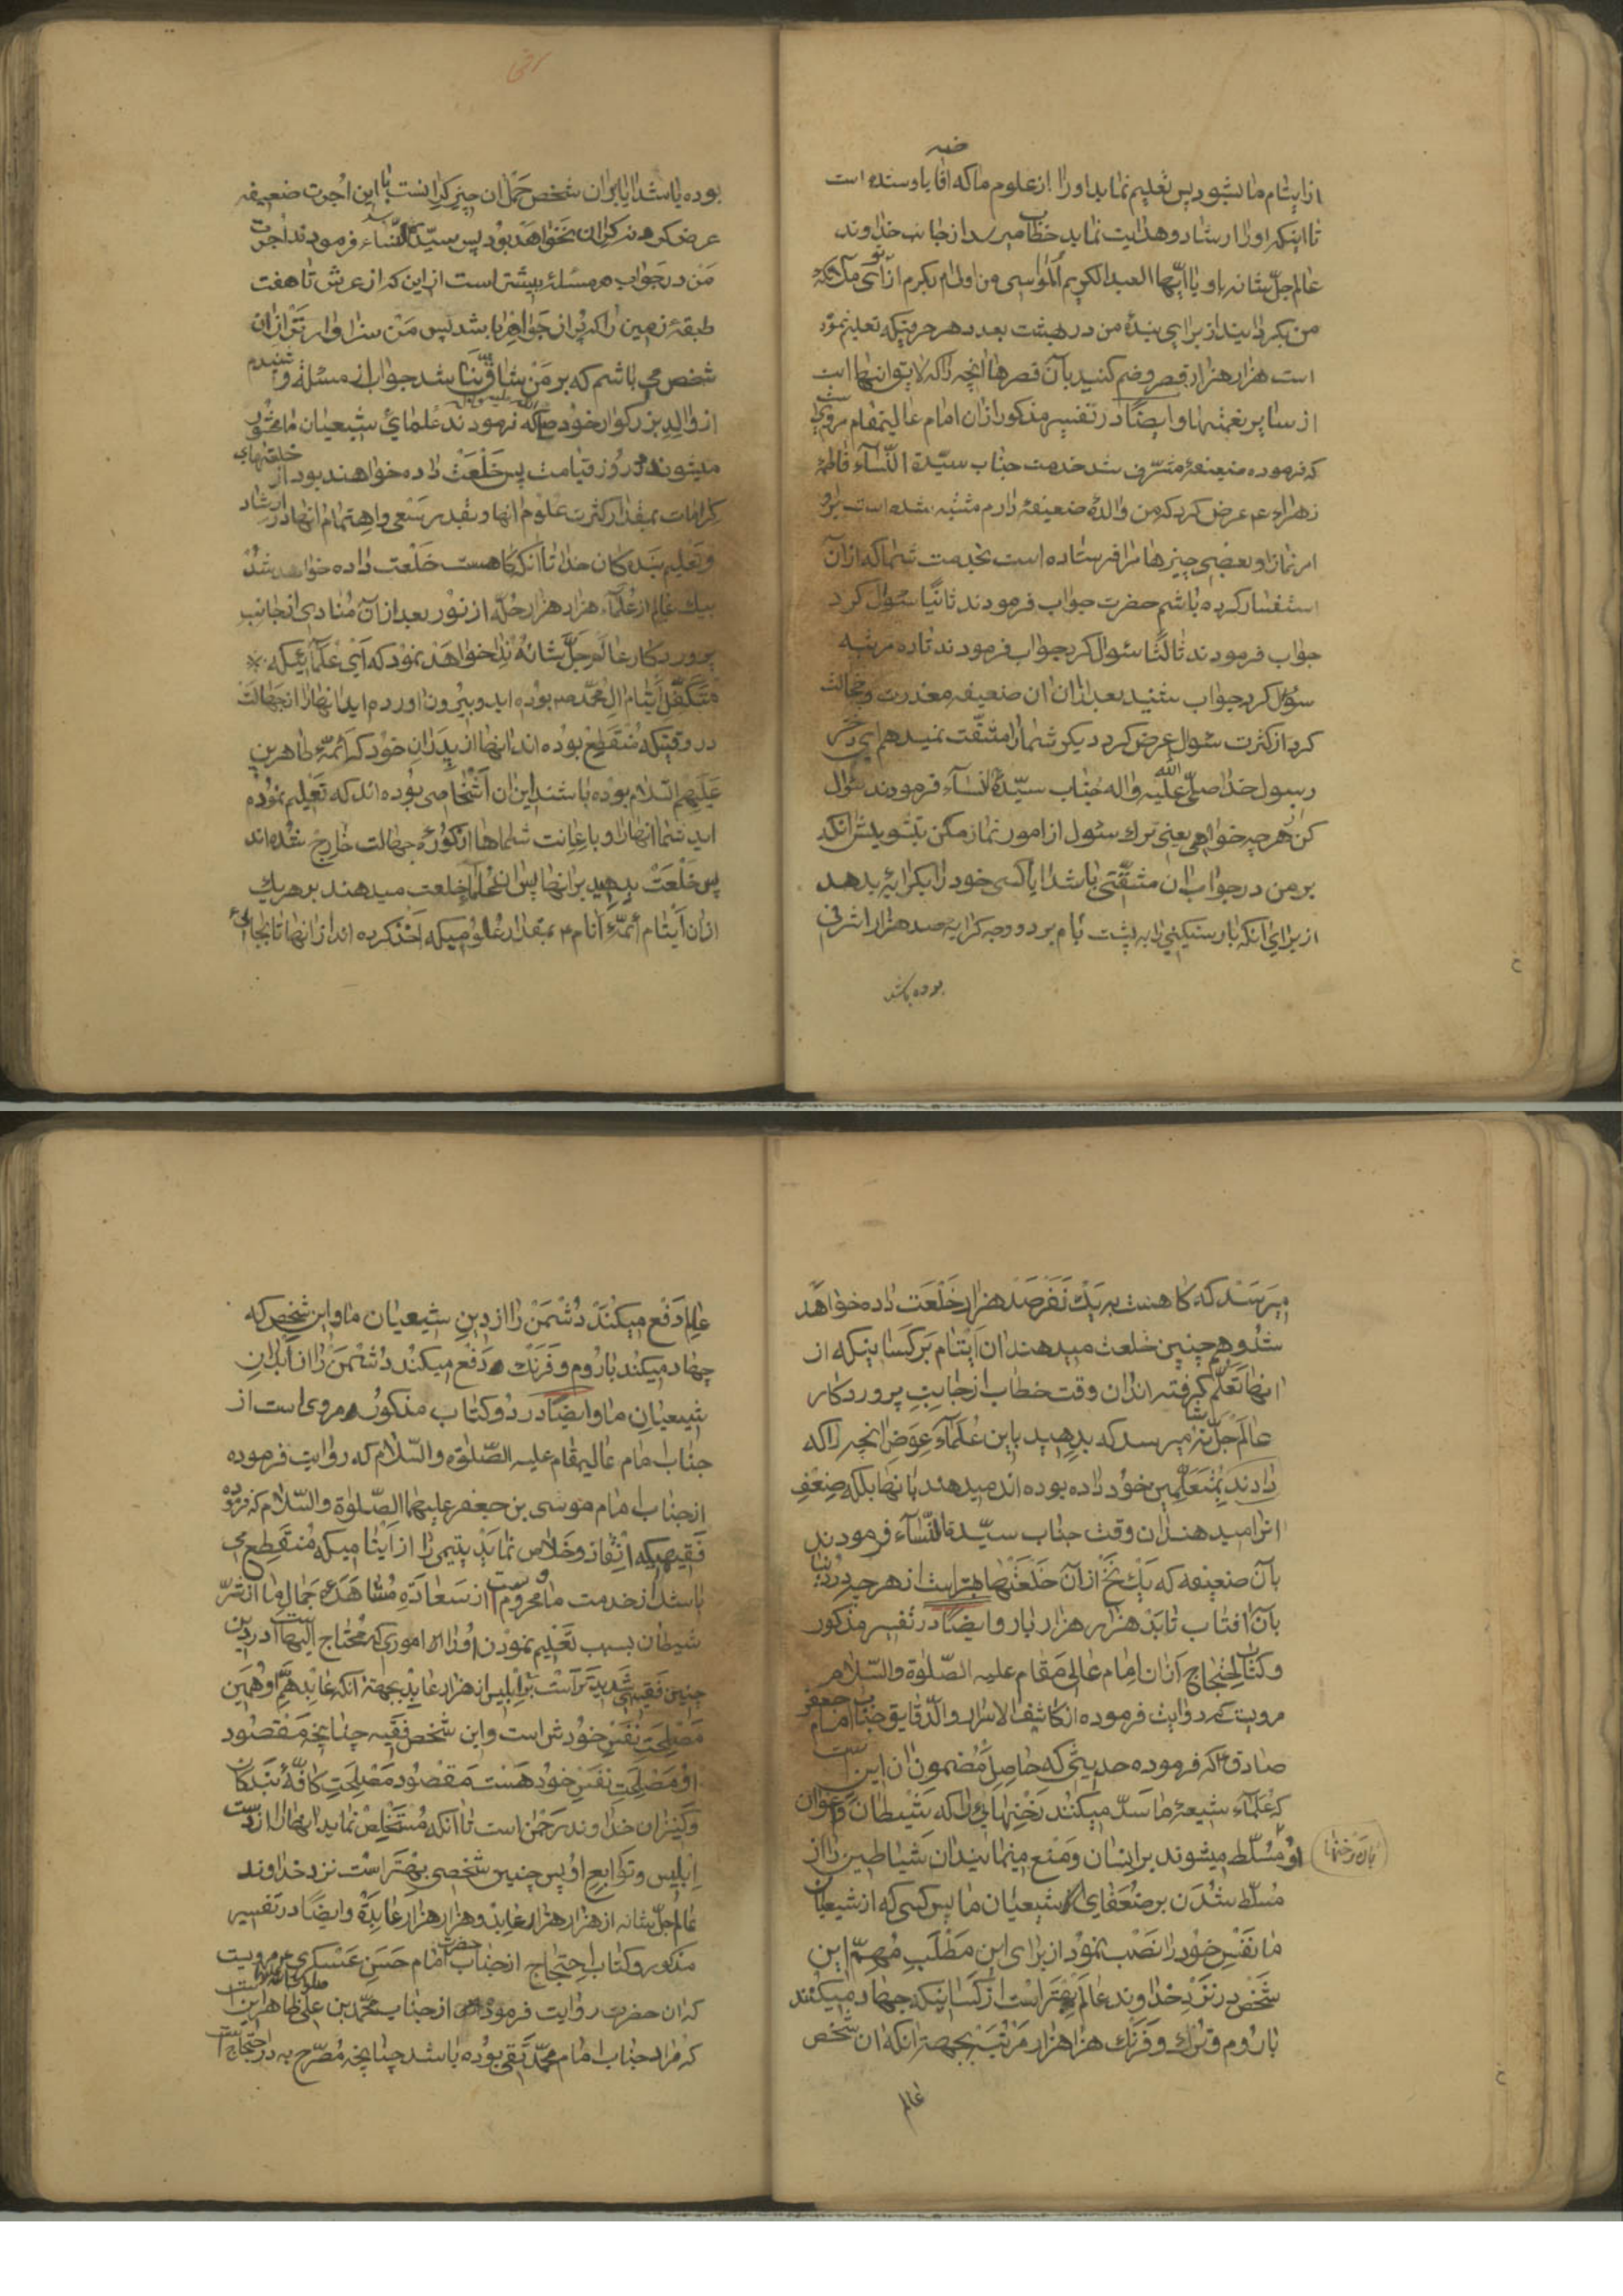 از ایتام ما بشود پس تعلیم نماید او را از علوم ما که آقا یا و سنده است
تا اینکه او را ارشاد و هدایت نماید خطاب میرسد از جانب خداوند
عالم جل شانه باو یا ایها العبد الکریم المواسی من اولی ام بکرم از تو ای ملائکه
من بگردانید از برای بندهٔ من در بهشت بعدد هر حرفیکه تعلیم نموده
است هزار هزار قصر و ضم کنید بآن قصرها آنچه را که لایق بآنهاست
از سایر نعمتها و ایضًا در تفسیر مذکور از ان امام عالیمقام مرویست
که فرموده ضعیفهٔ مشرف شد خدمت جناب سیدة النسآء فاطمهٔ
زهراء ع عرض کرد که من والدهٔ ضعیفهٔ دارم مشتبه شده است بر او
امر نماز او بعضی چیزها مرا فرستاده است بخدمت شما که از آن
استفسار کرده باشم حضرت جواب فرمودند ثانیًا سئوال کرد
جواب فرمودند ثالثًا سئوال کرد جواب فرمودند تا ده مرتبه
سئول کرد جواب شنید بعد از ان ان ضعیفه معذرت و خجالت
کرد از کثرت سئوال عرض کرد دیگر شما را مشقت نمیدهم ای دختر
رسول خدا صلی الله علیه و اله جناب سیدة النسآء فرمودند سئوال
کن از هر چه خواهی یعنی ترک سئول از امور نماز مکن بتشویش آنکه
بر من در جواب ان مشقتی باشد ایا کسی خود را بکرایه بدهد
از برای آنکه بار سنگینی را به پشت بام برد و وجه کرایه صد هزار اشرفی
بوده باشد
بوده باشد ایا بران شخص حمل ان چیز گرانست با این اجرت ضعیفه
عرض کرد نه گران نخواهد بود پس سیدة النساء فرمودند اجرت
من در جواب هر مسئله بیشتر است از این که از عرش تا هفت
طبقهٔ زمین را که پر از جواهر باشد پس من سزاوارتر از ان
شخص می باشم که بر من شاق نباشد جواب از مسئله و شنیدم
از والد بزرگوار خود ص که فرمودند علمای شیعیان ما محشور
میشوند در روز قیامت پس خلعت داده خواهند بود از خلعتهای
کرامات بمقدار کثرت علوم انها و بقدر سعی و اهتمام انها در ارشاد
و تعلیم بنده کان خدا تا آنکه کاهست خلعت داده خواهد شد
بیک عالم از علمآء هزار هزار حله از نور بعد از آن منادی از جانب
پروردکار عالم جل شانه ندا خواهد نمود که ای علمآئیکه
متکفل ایتام ال محمد ص بوده اید و بیرون اورده اید انها را از جهالت
در وقتیکه منقطع بوده اند انها از پدران خود که ائمهٔ طاهرین
علیهم السلام بوده باشند این ان اشخاصی بوده اند که تعلیم نموده
اید شما انها را و باعانت شماها از کورهٔ جهالت خارج شده اند
پس خلعت بدهید بر انها پس ان علمآء خلعت میدهند بر هر یک
از ان ایتام ائمهٔ انام ع بمقدار علومیکه اخذ کرده اند از انها تا بجائی
میرسد که کا هست به یک نفر صد هزار خلعت داده خواهد
شد و همچنین خلعت میدهند ان ایتام بر کسانیکه از
انها تعلم کرفته اند از ان وقت خطاب از جانب پروردکار
عالم جل شانه میرسد که بدهید باین علمآء عوض انچه را که
دادند بمتعلمین خود داده بوده اند میدهند بانها بلکه ضعف
انرا میدهند ان وقت جناب سیدة النسآء فرمودند
بآن ضعیفه که یک نخ از آن خلعتها بهتر است از هر چه در دنیا
بآن افتاب تابد هزار هزار بار و ایضًا در تفسیر مذکور
و کتاب احتجاج از ان امام عالی مقام علیه الصلوة والسلام
مرویست که روایت فرموده از کاشف الاسرار و الدقایق جناب امام جعفر
صادق ع که فرموده حدیثی که حاصل مضمون ان اینست
که علمآء شیعهٔ ما سد میکنند رخنهائی را که شیطان و اعوان
او مسلط میشوند بر ایشان و منع مینمایند ان شیاطین را از
بان رخنها
مسلط شدن بر ضعفای شیعیان ما پس کسی که از شیعیان
ما نفس خود را نصب نمود از برای این مطلب مهم این
شخص در نزد خداوند عالم بهتر است از کسانیکه جهاد میکنند
با روم و ترک و فرنک هزار هزار مرتبه بجهة انکه ان شخص
عالم
عالم دفع میکند دشمن را از دین شیعیان ما و این شخص که
جهاد میکند با روم و فرنک دفع میکند دشمن را از ابدان
شیعیان ما و ایضًا در دو کتاب مذکور مروی است از
جناب امام عالیمقام علیه الصلوة والسلام که روایت فرموده
از جناب امام موسی بن جعفر علیهما الصلوة والسلام که فرموده
فقیهیکه انقاذ و خلاص نماید یتیمی را از ایتامیکه منقطع می
باشند از خدمت ما و محرومست از سعادة مشاهدهٔ جمال ما از شر
شیطان بسبب تعلیم نمودن او را اموری که محتاج الیهاست در دین
چنین فقیهی شدیدتر است بر ابلیس از هزار عابد بجهة انکه عابد هم او همین
مصلحت نفس خودش است و این شخص فقیه چنانچه مقصود
او مصلحت نفس خود هست مقصود مصلحت کافهٔ بندکان
و کنیزان خداوند رحمن است تا آنکه مستخلص نماید انها را از دست
ابلیس و توابع او پس چنین شخصی بهتر است نزد خداوند
عالم جل شانه از هزار هزار عابد و هزار هزار عابدة و ایضًا در تفسیر
مذکور و کتاب احتجاج از جناب حضرت امام حسن عسکری ع مرویست
که ان حضرت روایت فرموده از جناب محمد بن علی ظاهر اینست
که مراد جناب امام محمد تقی بوده باشد چنانچه مصرح به در احتجاج است